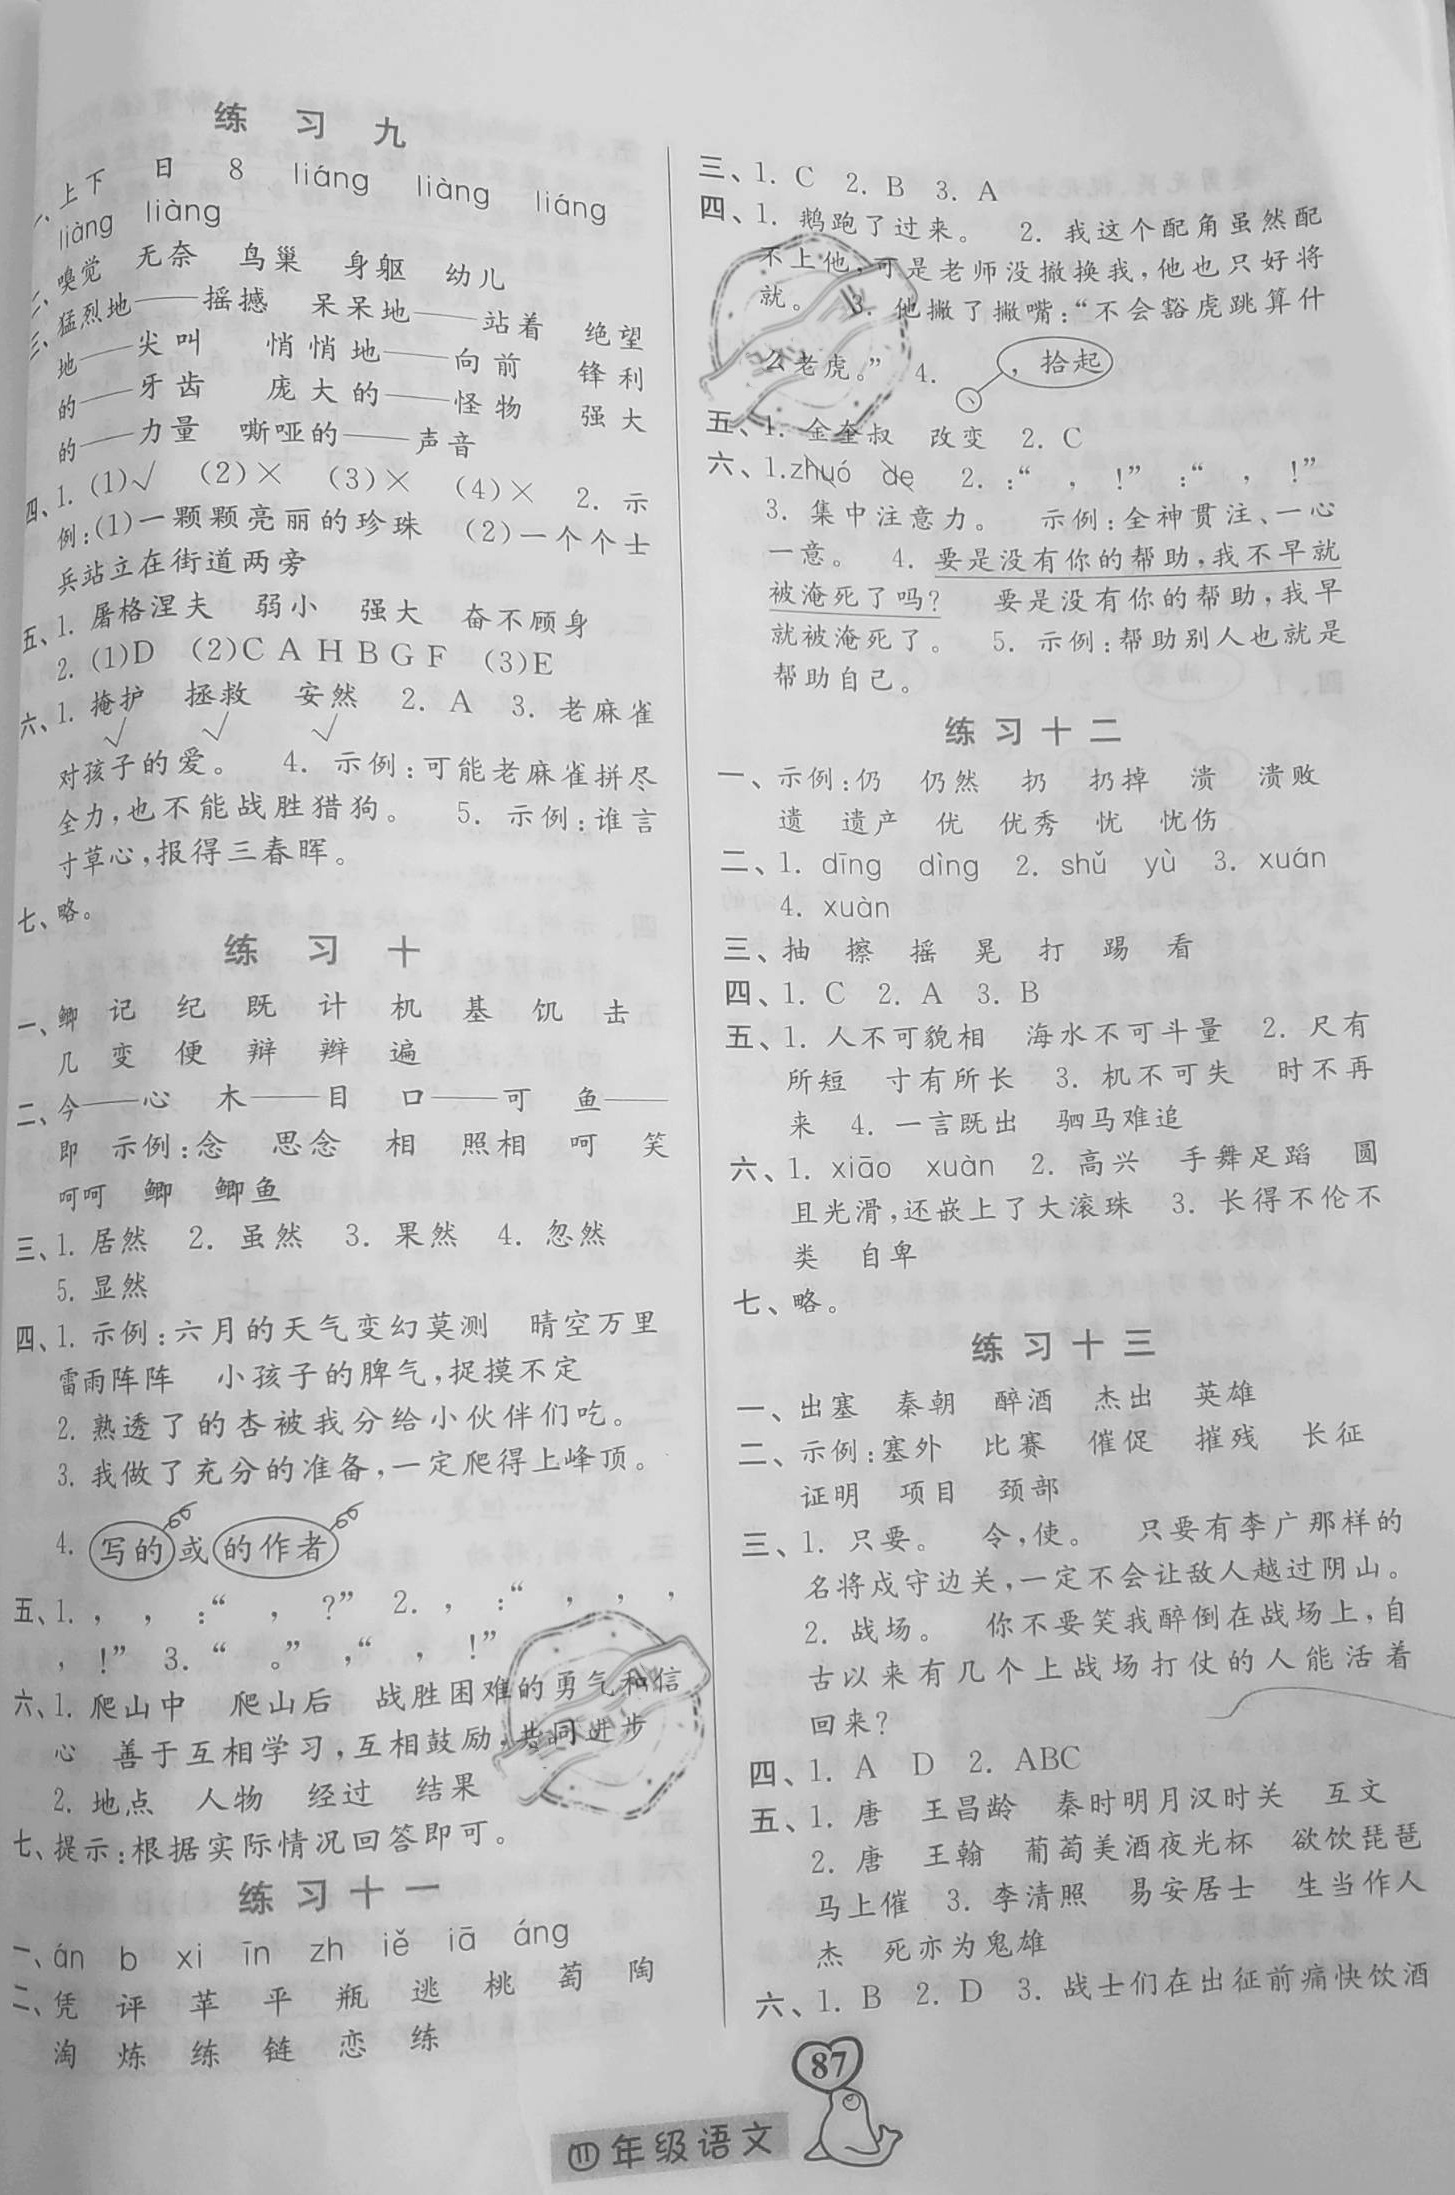 练 习 九
一、上下 日 8 liáng liàng liáng
liàng liàng
二、嗅觉 无奈 鸟巢 身躯 幼儿
三、猛烈地——摇撼 呆呆地——站着 绝望
地——尖叫 悄悄地——向前 锋利
的——牙齿 庞大的——怪物 强大
的——力量 嘶哑的——声音
四、1. (1)√ (2)× (3)× (4)× 2. 示
例:(1)一颗颗亮丽的珍珠 (2)一个个士
兵站立在街道两旁
五、1. 屠格涅夫 弱小 强大 奋不顾身
2. (1)D (2)C A H B G F (3)E
六、1. 掩护 拯救 安然 2. A 3. 老麻雀
√ √ √
对孩子的爱。 4. 示例:可能老麻雀拼尽
全力,也不能战胜猎狗。 5. 示例:谁言
寸草心,报得三春晖。
七、略。
练 习 十
一、鲫 记 纪 既 计 机 基 饥 击
几 变 便 辩 辫 遍
二、今——心 木——目 口——可 鱼——
即 示例:念 思念 相 照相 呵 笑
呵呵 鲫 鲫鱼
三、1. 居然 2. 虽然 3. 果然 4. 忽然
5. 显然
四、1. 示例:六月的天气变幻莫测 晴空万里
雷雨阵阵 小孩子的脾气,捉摸不定
2. 熟透了的杏被我分给小伙伴们吃。
3. 我做了充分的准备,一定爬得上峰顶。
4. 写的或的作者
五、1. , , :“ , ?” 2. , :“ , , ,
, !” 3. “ 。” ,“ , !”
六、1. 爬山中 爬山后 战胜困难的勇气和信
心 善于互相学习,互相鼓励,共同进步
2. 地点 人物 经过 结果
七、提示:根据实际情况回答即可。
练 习 十 一
一、án b xi īn zh iě iā áng
二、凭 评 苹 平 瓶 逃 桃 萄 陶
淘 炼 练 链 恋 练
三、1. C 2. B 3. A
四、1. 鹅跑了过来。 2. 我这个配角虽然配
不上他,可是老师没撤换我,他也只好将
就。 3. 他撇了撇嘴:“不会豁虎跳算什
么老虎。” 4. ,拾起
五、1. 金奎叔 改变 2. C
六、1. zhuó de 2. :“ , !” :“ , !”
3. 集中注意力。 示例:全神贯注、一心
一意。 4. 要是没有你的帮助,我不早就
被淹死了吗? 要是没有你的帮助,我早
就被淹死了。 5. 示例:帮助别人也就是
帮助自己。
练 习 十 二
一、示例:仍 仍然 扔 扔掉 溃 溃败
遗 遗产 优 优秀 忧 忧伤
二、1. dīng dìng 2. shǔ yù 3. xuán
4. xuàn
三、抽 擦 摇 晃 打 踢 看
四、1. C 2. A 3. B
五、1. 人不可貌相 海水不可斗量 2. 尺有
所短 寸有所长 3. 机不可失 时不再
来 4. 一言既出 驷马难追
六、1. xiāo xuàn 2. 高兴 手舞足蹈 圆
且光滑,还嵌上了大滚珠 3. 长得不伦不
类 自卑
七、略。
练 习 十 三
一、出塞 秦朝 醉酒 杰出 英雄
二、示例:塞外 比赛 催促 摧残 长征
证明 项目 颈部
三、1. 只要。 令,使。 只要有李广那样的
名将戍守边关,一定不会让敌人越过阴山。
2. 战场。 你不要笑我醉倒在战场上,自
古以来有几个上战场打仗的人能活着
回来?
四、1. A D 2. ABC
五、1. 唐 王昌龄 秦时明月汉时关 互文
2. 唐 王翰 葡萄美酒夜光杯 欲饮琵琶
马上催 3. 李清照 易安居士 生当作人
杰 死亦为鬼雄
六、1. B 2. D 3. 战士们在出征前痛快饮酒
87
四年级语文